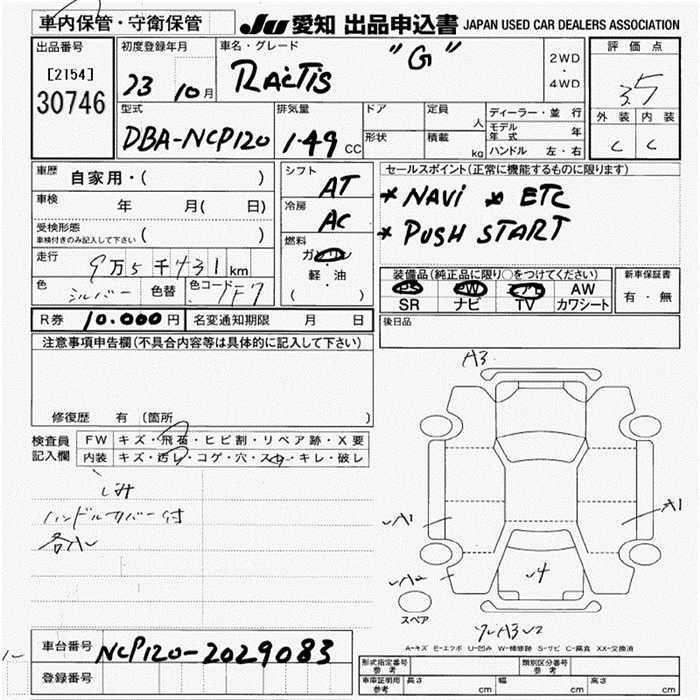 車内保管・守衛保管
JU 愛知 出品申込書 JAPAN USED CAR DEALERS ASSOCIATION
出品番号
[2154]
30746
初度登録年月
23 10月
車名・グレード
RACTIS "G"
2WD
・
4WD
評価点
3.5
外装 内装
C C
型式
DBA-NCP120
排気量
1.49 CC
ドア
定員 人
形状
積載 kg
ディーラー・並行
モデル年式 年
ハンドル 左・右
車歴 自家用・( )
車検 年 月( 日)
受検形態
車検付きのみ記入して下さい ( )
走行 9万5千431km
色 シルバー 色替 色コード 1F7
シフト AT
冷房 AC
燃料
ガソリン
軽・油
( )
セールスポイント(正常に機能するものに限ります)
* NAVi * ETC
* PUSH START
装備品(純正品に限り○をつけてください)
PS PW エアB AW
SR ナビ TV カワシート
新車保証書
有・無
R券 10.000円 名変通知期限 月 日
後日品
注意事項申告欄(不具合内容等は具体的に記入して下さい)
修復歴 有 (箇所 )
検査員記入欄
FW キズ・飛石・ヒビ割・リペア跡・X要
内装 キズ・汚レ・コゲ・穴・スレ・キレ・破レ
しみ
ハンドルカバー付
各ハレ
A3
A1
A1
A2
スペア
A3
A-キズ E-エクボ U-凹み W-補修跡 S-サビ C-腐食 XX-交換済
車台番号 NCP120-2029083
登録番号
形式指定番号 参考
類別区分番号 参考
車庫証明用 参考
長さ cm
幅 cm
高さ cm